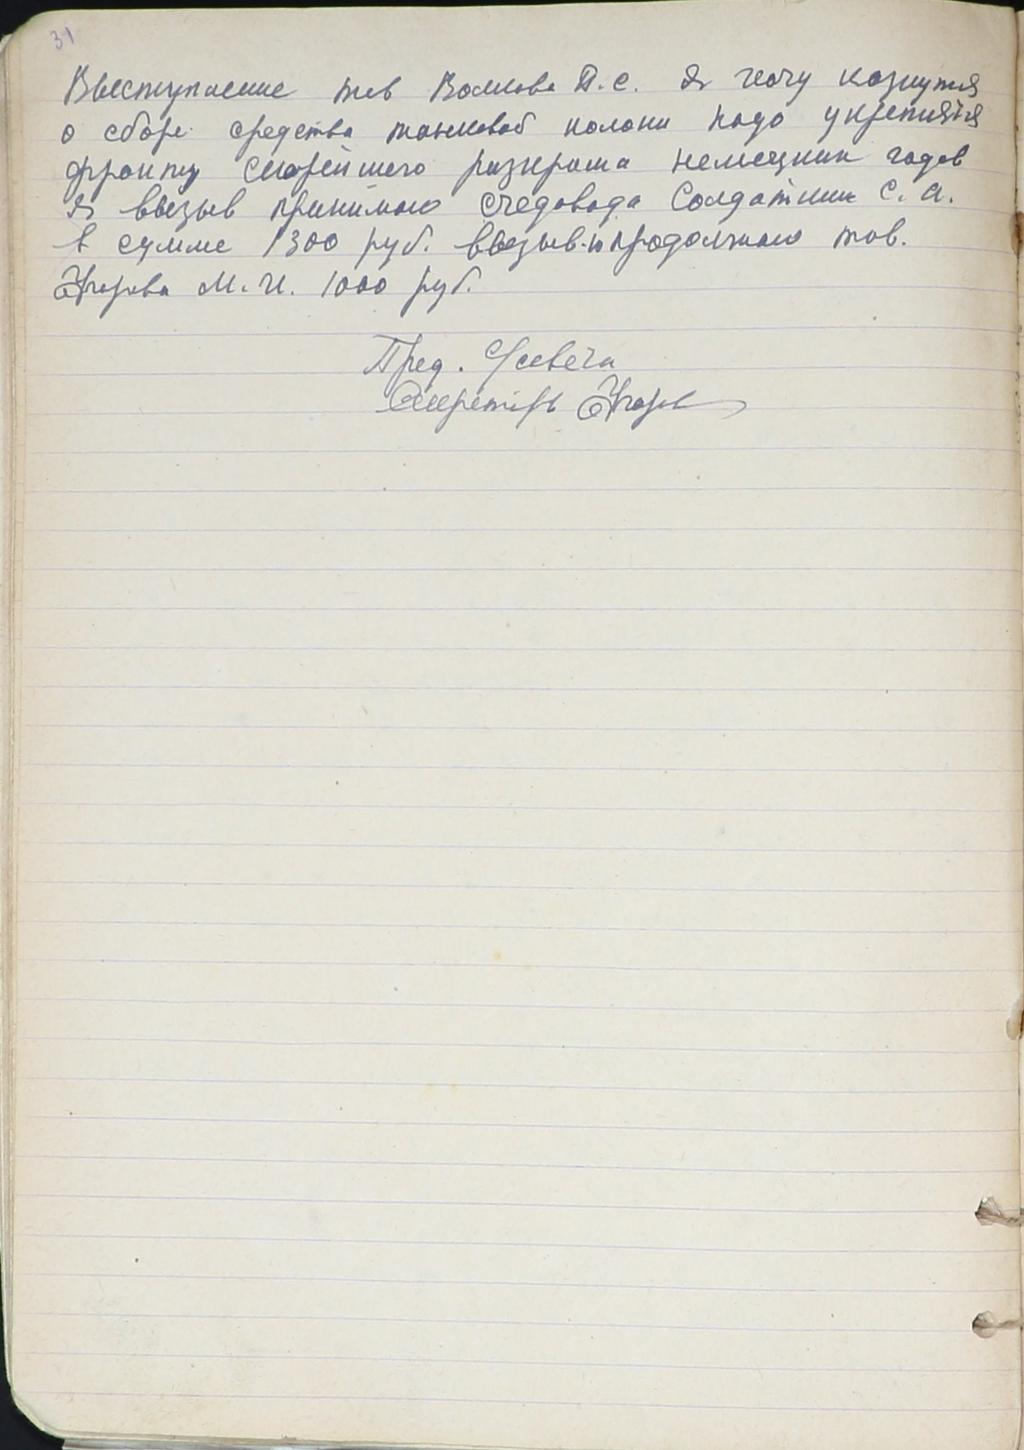 31
Выступление тов Волкова П.С. Я хочу коснутся
о сборе средства танковоб колони надо укрепиятя
фронту скорейшего разгрома немецких годов
Я вызыв принимаю счедовода Солдаткин С.А.
в сумме 1300 руб. вызыв-ю продолжаю тов.
Егорова М.И. 1000 руб.
Пред.
Секретарь Егоров